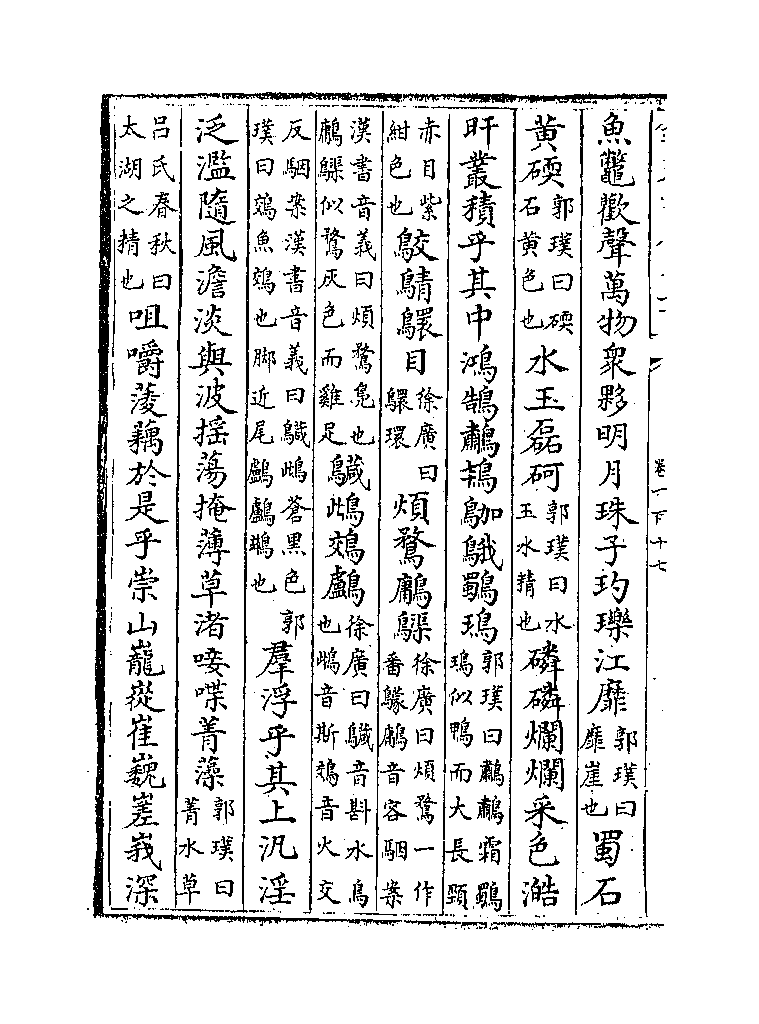 魚鼈歡聲萬物衆夥明月珠子玓瓅江靡郭璞曰靡崖也蜀石
黄碝郭璞曰碝石黄色也水玉磊砢郭璞曰水玉水精也磷磷爛爛采色澔
旰叢積乎其中鴻鵠鷫鴇鴐鵝鸀鳿郭璞曰鷫鷫霜鸀鳿似鴨而大長頸
赤目紫紺色也鵁鶄䴉目徐廣曰䴉環煩鶩鷛𪆫徐廣曰煩鶩一作番䴌鷛音容駰案
漢書音義曰煩鶩鳧也鷛𪆫似鶩灰色而雞足䴋鴜鵁鸕徐廣曰䴋音斟水鳥也鴜音斯鵁音火交
反駰案漢書音義曰䴋鴜蒼黑色郭璞曰鵁魚鵁也脚近尾鸕鸕鷀也羣浮乎其上汎淫
泛濫隨風澹淡與波摇蕩掩薄草渚唼喋菁藻郭璞曰菁水草
吕氏春秋曰太湖之精也咀嚼菱藕於是乎崇山巃嵸崔巍嵳峩深
卷一百十七